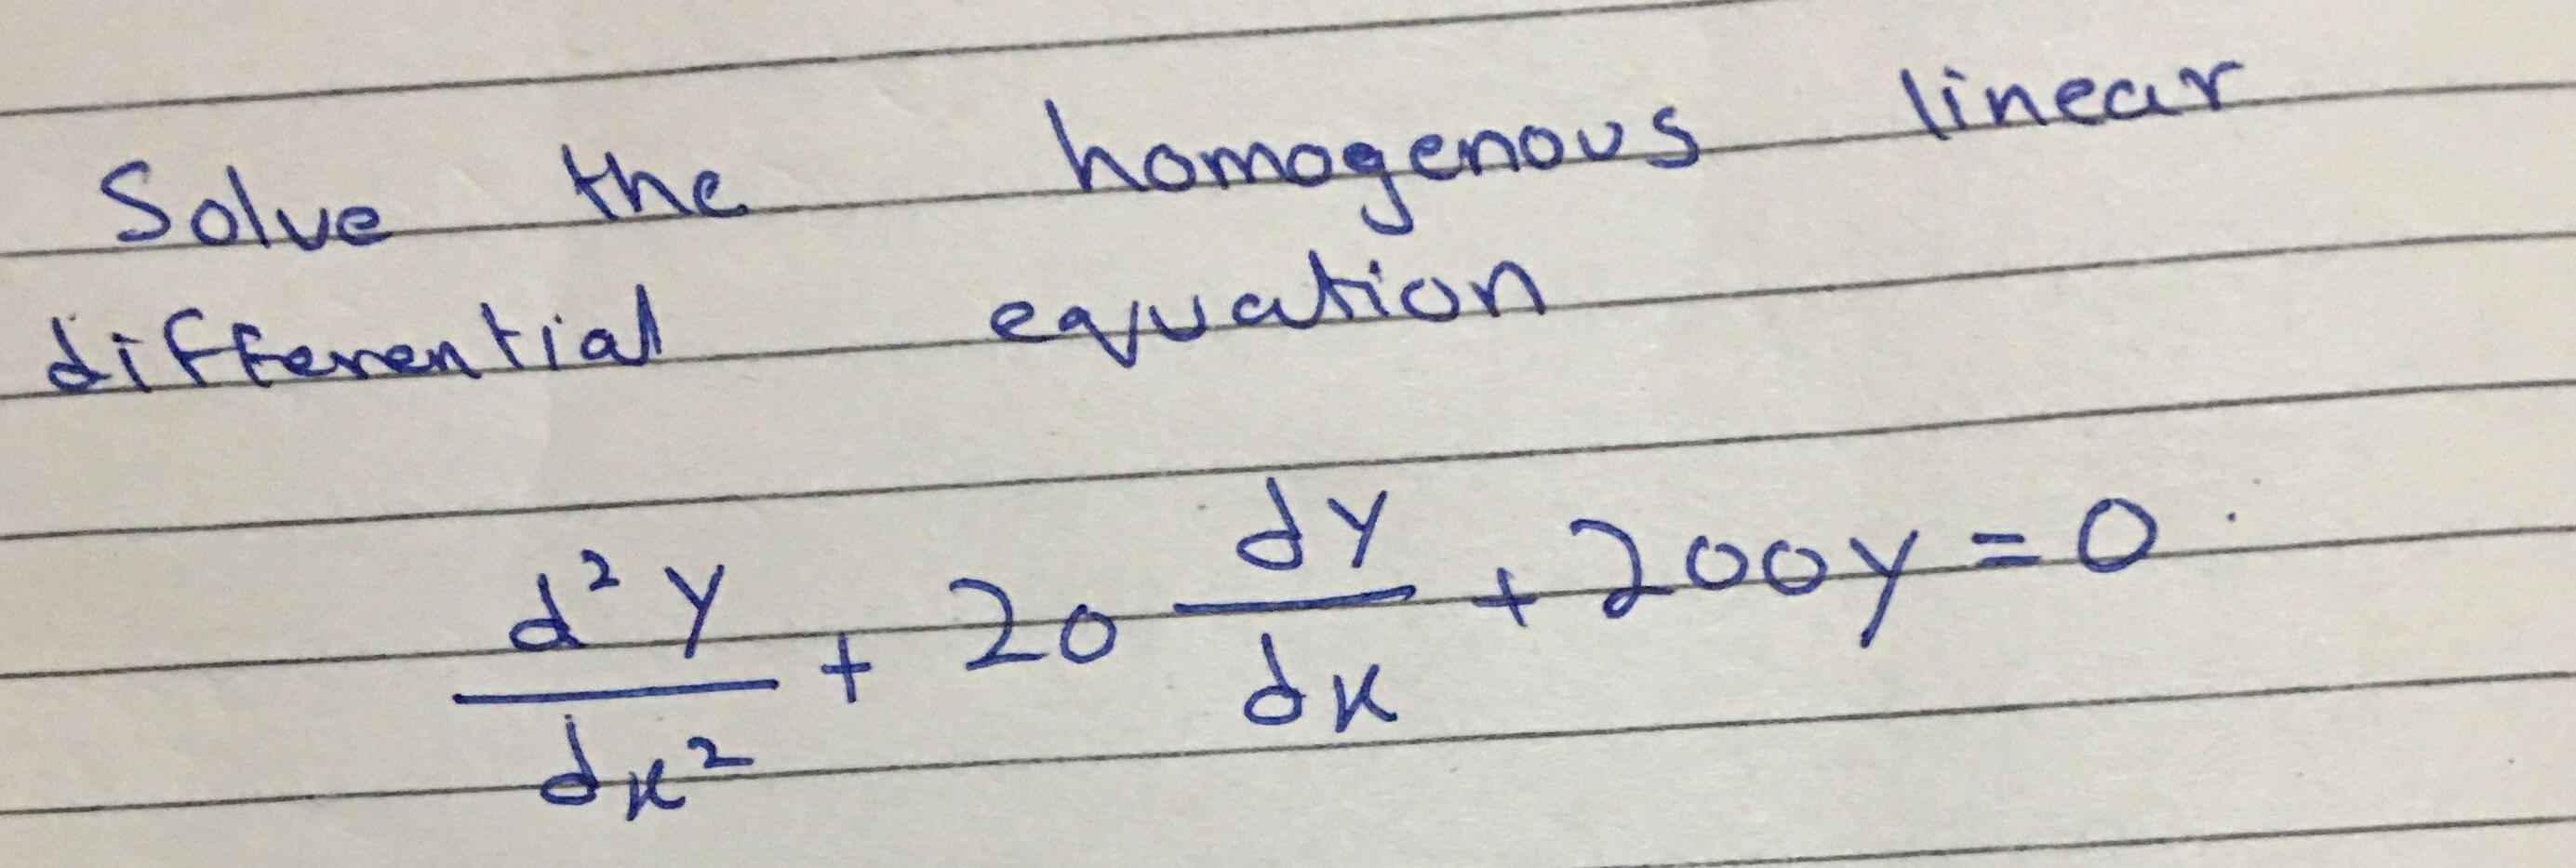 Solve the homogenous linear
differential equation
d²y/dx² + 20 dy/dx + 200y = 0.